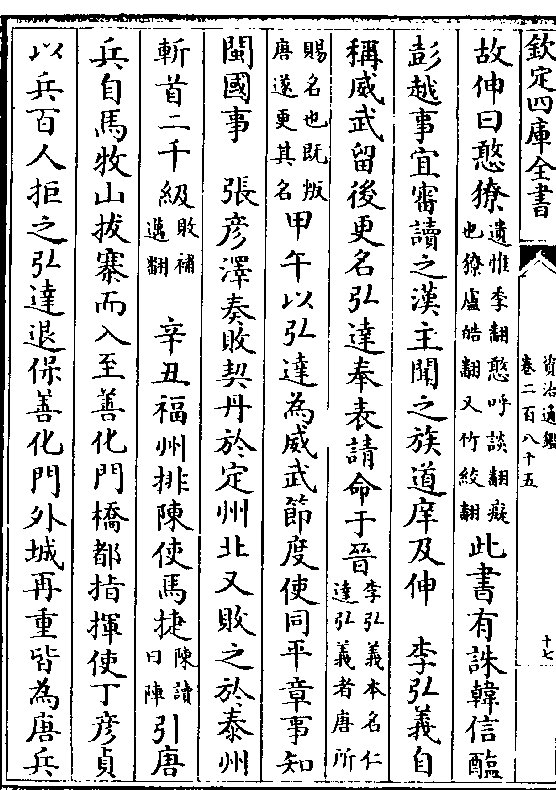 欽定四庫全書
資治通鑑
卷二百八十五
十七
故伸曰憨獠遺惟李翻憨呼談翻癡
也獠盧皓翻又竹絞翻此書有誅韓信醢
彭越事宜審讀之漢主聞之族道庠及伸　李弘義自
稱威武留後更名弘達奉表請命于晉李弘義本名仁
達弘義者唐所
賜名也既叛
唐遂更其名甲午以弘達為威武節度使同平章事知
閩國事　張彦澤奏敗契丹於定州北又敗之於泰州
斬首二千級敗補
邁翻　辛丑福州排陳使馬捷陳讀
曰陣引唐
兵自馬牧山拔寨而入至善化門橋都指揮使丁彦貞
以兵百人拒之弘達退保善化門外城再重皆為唐兵